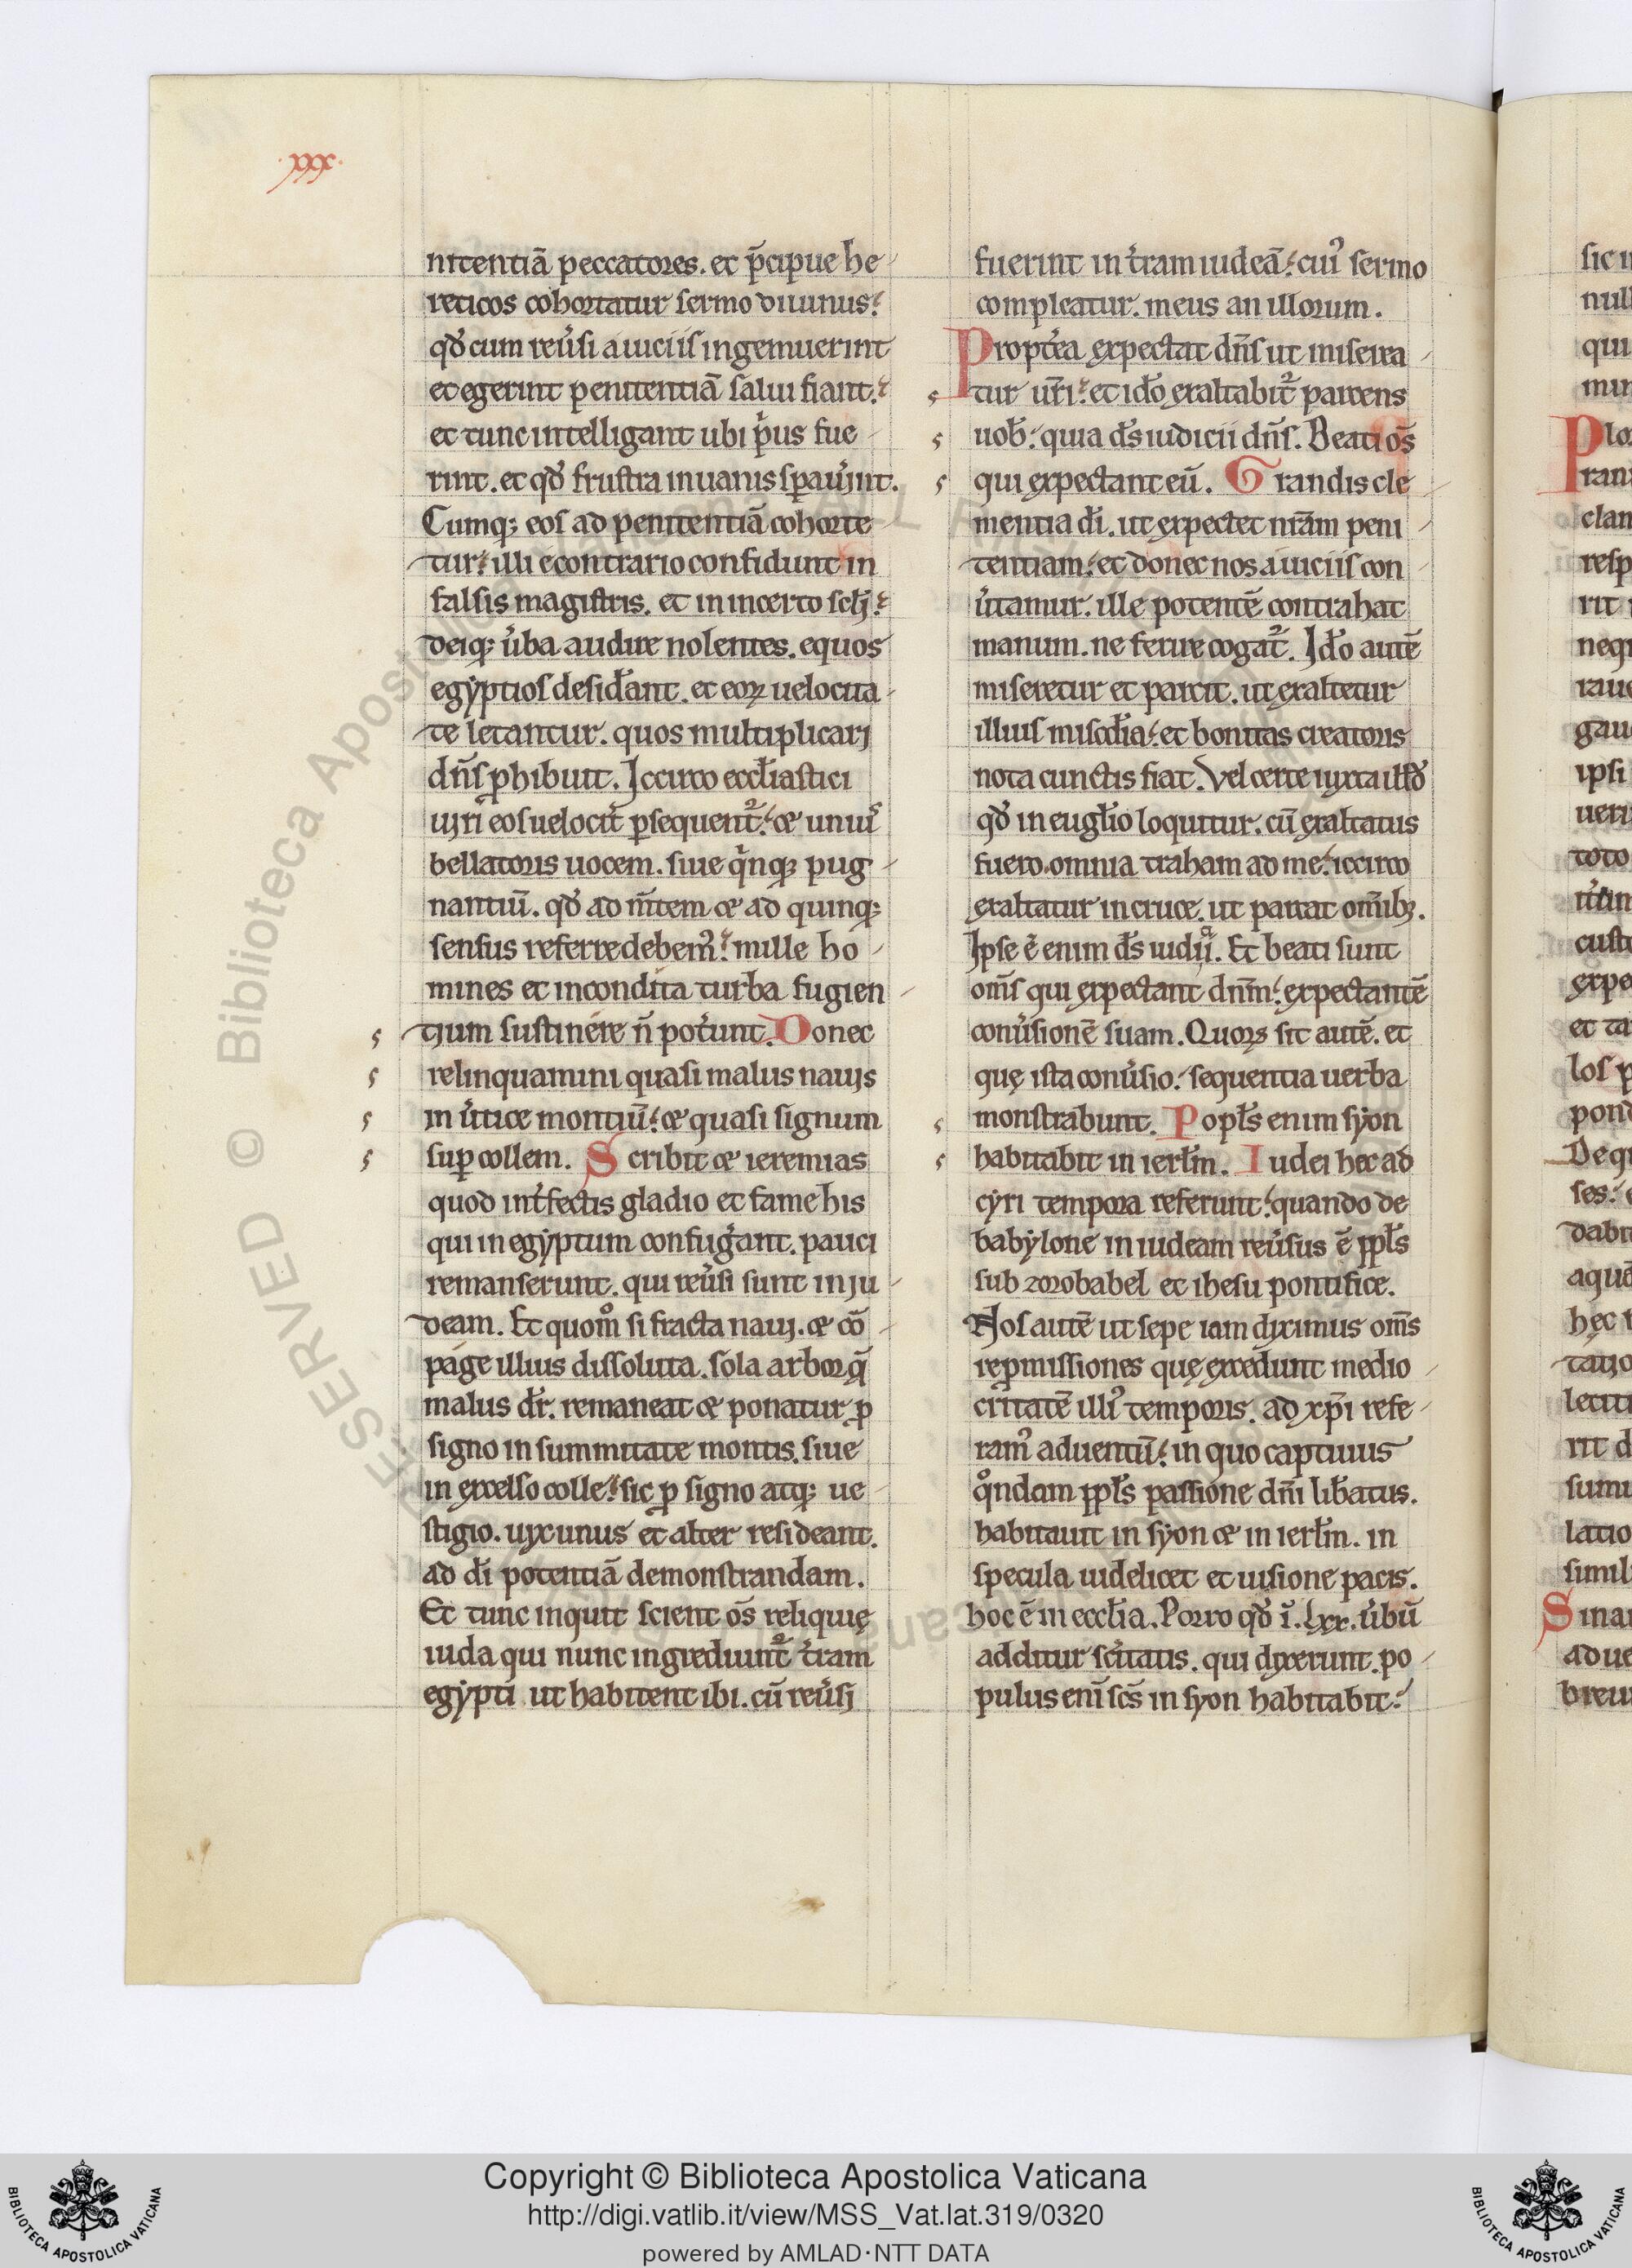 .xxx.
nitentiā peccatores. et p̄cipue he
reticos cohortatur sermo diuinus.
qď cum reu̓si a uiciis ingemuerint
et egerint penitentiā salui fiant.
et tunc intelligant ubi p̓us fue
rint. et qď frustra in uanis spau̓int.
Cumq; eos ad penitentiā cohorte
tur. illi econtrario confidunt in
falsis magistris. et in incerto sclı̓.
deiq; u̓ba audire nolentes. equos
egyptios desid̓ant. et eoꝝ uelocita
te letantur. quos multiplicari
dn̄s ꝓhibuit. Iccirco eccl̓iastici
uiri eos uelocit̓ ꝑsequent᷑. ⁊ uniꝰ
bellatoris uocem. siue qͥnq; pug
nantiū. qď ad m̄tem ⁊ ad quinq;
sensus referre debemꝰ. mille ho
mines et incondita turba fugien
tium sustinere n̄ pot̓unt. Donec
relinquamini quasi malus nauis
in u̓tice montiū. ⁊ quasi signum
suꝑ collem. Scribit ⁊ ieremias
quod int̓fectis gladio et fame his
qui in egyptum confug̓ant. pauci
remanserunt. qui reu̓si sunt in iu
deam. Et quom̊ si fracta naui. ⁊ cō
page illius dissoluta. sola arbor q̄
malus dr̄. remaneat ⁊ ponatur ꝓ
signo in summitate montis. siue
in excelso colle. sic ꝓ signo atq; ue
stigio. uix unus et alter resideant.
ad dı̄ potentiā demonstrandam.
Et tunc inquit scient os̄ reliquię
iuda qui nunc ingrediunt᷑ t̓ram
egypti ut habitent ibi. cū reu̓si
fuerint in t̓ram iudeā. cuiꝰ sermo
compleatur. meus an illorum.
Propt̓ea expectat dn̄s ut miserea
tur ur̄i. et ido̓ exaltabit᷑ parcens
uob̓. quia ds̄ iudicii dn̄s. Beati os̄
qui expectant eū. Grandis cle
mentia dı̄. ut expectet nr̄am peni
tentiam. et donec nos a uiciis con
u̓tamur. ille potentē contrahat
manum. ne ferire cogat᷑. Ido̓ autē
miseretur et parcit. ut exaltetur
illius miscd̓ia. et bonitas creatoris
nota cunctis fiat. Vel certe iuxta illď
qď in eugl̓io loquitur. cū exaltatus
fuero. omnia traham ad me. iccirco
exaltatur in cruce. ut parcat om̄ibꝫ.
Ipse ē enim ds̄ iudiͣi. Et beati sunt
om̄s qui expectant dn̄m. expectantē
conu̓sionē suam. Quoꝝ sit autē. et
quę ista conu̓sio. sequentia uerba
monstrabunt. Popl̓s enim syon
habitabit in ierl̓m. Iudei hec ad
cyri tempora referunt. quando de
babylone in iudeam reu̓sus ē ppl̓s
sub zorobabel et ihesu pontifice.
Nos autē ut sepe iam diximus om̄s
repmissiones quę exced̓unt medio
critatē illiꝰ temporis. ad xp̄i refe
ramꝰ aduentū. in quo captiuus
qͦndam ppl̓s passione dn̄i lib̓atus.
habitauit in syon ⁊ in ierl̓m. in
specula uidelicet et uisione pacis.
hoc ē in eccl̓ia. Porro qď ı̄. lxx. u̓bū
additur scı̓tatis. qui dixerunt. po
pulus enī scs̄ in syon habitabit.
Copyright © Biblioteca Apostolica Vaticana
http://digi.vatlib.it/view/MSS_Vat.lat.319/0320
powered by AMLAD·NTT DATA
BIBLIOTECA APOSTOLICA VATICANA
BIBLIOTECA APOSTOLICA VATICANA